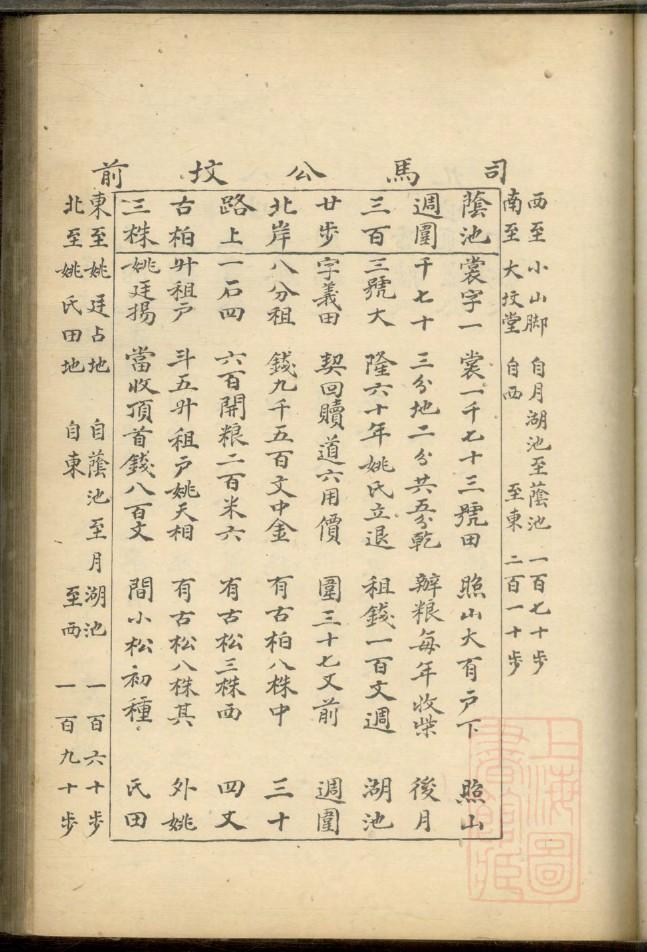 司馬公坟前
西至小山脚 自月湖池至蔭池 一百七十步
南至大坟堂 自西至東 二百一十步
蔭池 裳字一 裳一千七十三號田 照山大有户下 照山
週圍 千七十 三分地二分共五分乾 辦粮每年收柴 後月
三百 三號大 隆六十年姚氏立退 租錢一百文週 湖池
廿步 字義田 契回贖道六用價 圍三十七丈前 週圍
北岸 八分租 錢九千五百文中金 有古柏八株中 三十
路上 一石四 六百開粮二百米六 有古松三株西 四丈
古柏 升租户 斗五升租户姚天相 有古松八株其 外姚
三株 姚廷揚 當收頂首錢八百文 間小松初種 氏田
東至姚廷占地 自蔭池至月湖池 一百六十步
北至姚氏田地 自東至西 一百九十步
上海圖
書館藏